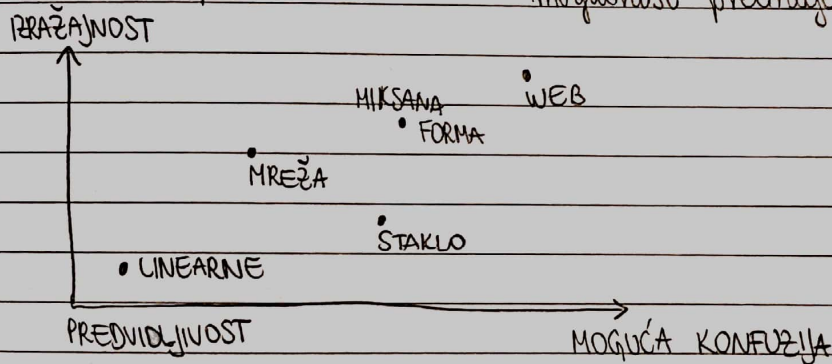 IZRAŽAJNOST
MIKSANA
FORMA
WEB
MREŽA
STAKLO
LINEARNE
PREDVIDLJIVOST
MOGUĆA KONFUZIJA